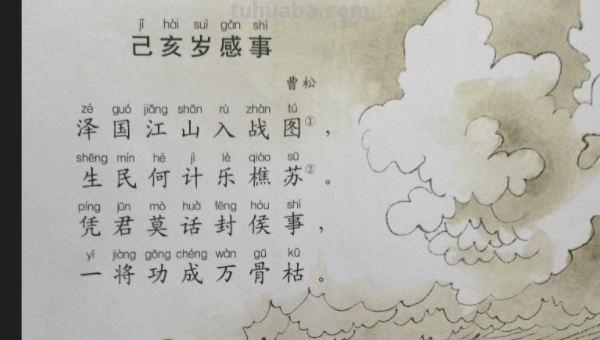 tuhuaba.com
jǐ hài suì gǎn shì
己亥岁感事
曹松
zé guó jiāng shān rù zhàn tú
泽国江山入战图①，
shēng mín hé jì lè qiáo sū
生民何计乐樵苏②。
píng jūn mò huà fēng hóu shì
凭君莫话封侯事，
yī jiàng gōng chéng wàn gǔ kū
一将功成万骨枯。